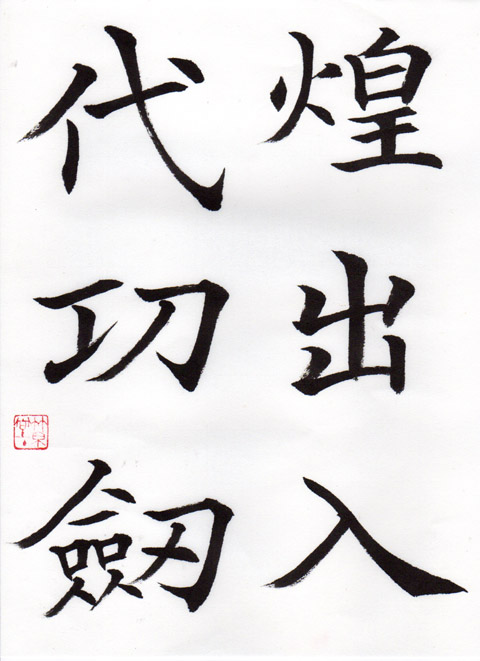 煌出入
代㓛劒